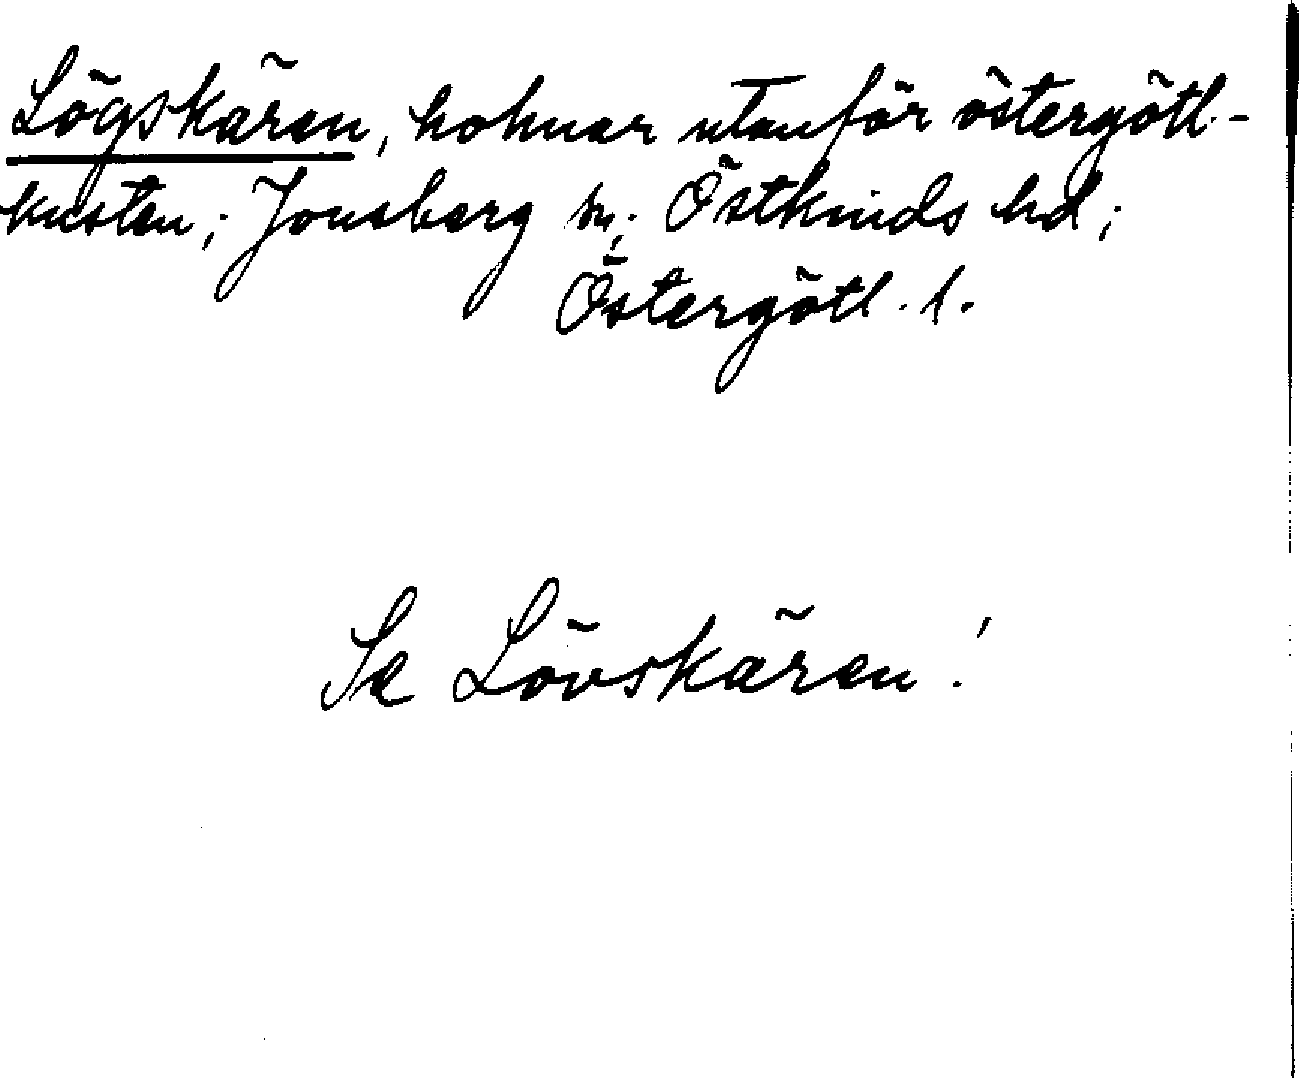 Lögskären, holmar utanför östergötl.-
kusten; Jonsberg sn; Östkinds hd;
Östergötl. l.
Se Lövskären!